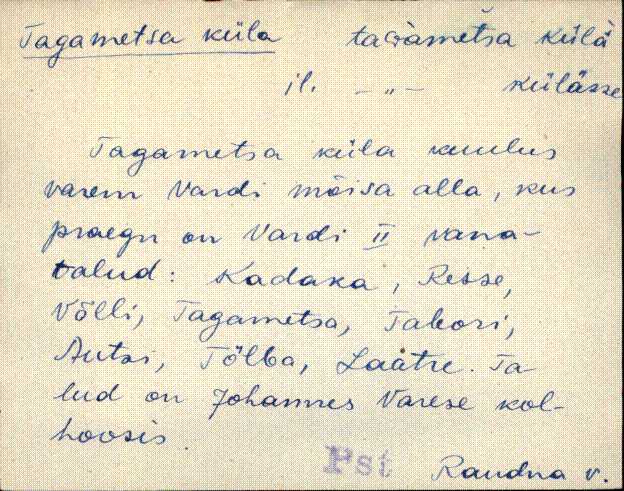 Tagametsa küla taɢàmètsa külä
il. — „ — külässe
Tagametsa küla kuulus
varem Vardi mõisa alla, kus
praegu on Vardi II vana-
talud: Kadaka, Resse,
Võlli, Tagametsa, Tabori,
Autsi, Tõlba, Laatre. Ta-
lud on Johannes Varese kol-
hoosis.
Pst Raudna v.